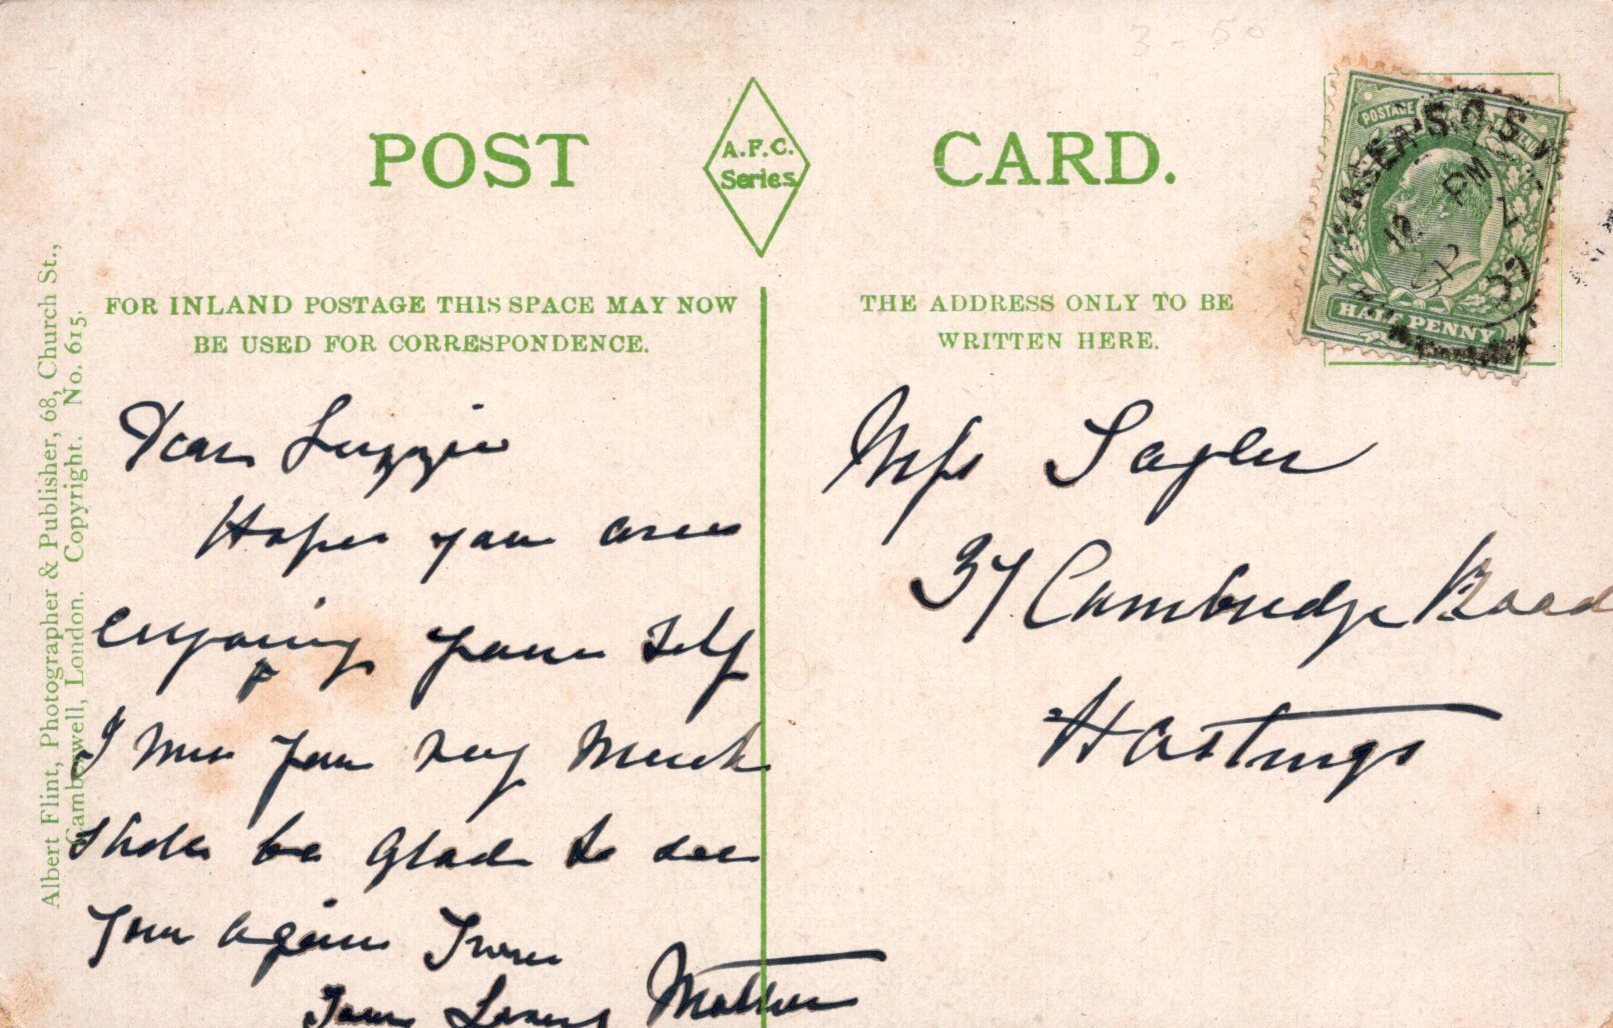 3 - 50
POST CARD.
A.F.C.
Series
FOR INLAND POSTAGE THIS SPACE MAY NOW
BE USED FOR CORRESPONDENCE.
THE ADDRESS ONLY TO BE
WRITTEN HERE.
POSTAGE
HALF PENNY
PM
Albert Flint, Photographer & Publisher, 68, Church St.,
Camberwell, London. Copyright. No. 615.
Dear Luzzie
Hopes you are
enjoying your self
I miss you very Much
shole be glad to see
you again From
Your Loving Mother
Mrs
37 Cambridge Road
Hastings